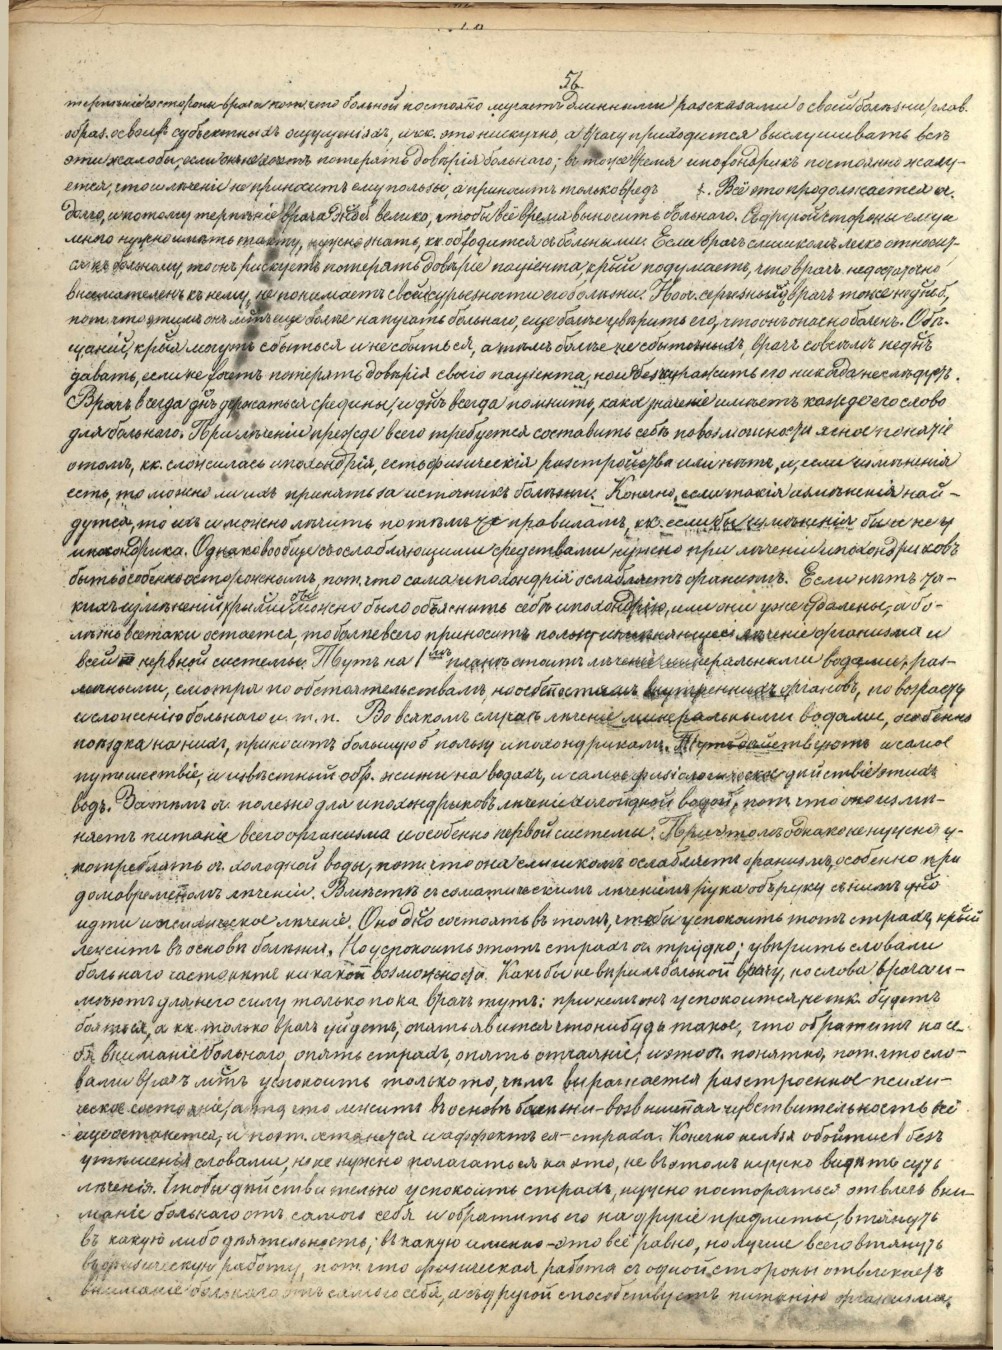 56
терпѣніе со стороны врача пот. что больной постоянно мучаетъ длинными разсказами о своей болѣзни, глав.
образ. о своихъ субъектныхъ ощущеніяхъ, и кк. это ни скучно, а врачу приходится выслушивать всѣ
эти жалобы, если онъ не хочетъ потерять довѣрія больного; въ тоже время ипохондрикъ постоянно жалу-
ется, что леченіе не приноситъ ему пользы, а приноситъ только вредъ. Всё это продолжается оч.
долго, и потому терпѣніе врача дб. велико, чтобы всё время выносить больного. Съ другой стороны ему
много нужно имѣть такту, нужно знать, кк. обходится съ больными. Если врачъ слишкомъ легко относит-
ся къ больному, то онъ рискуетъ потерять довѣріе паціента, крый подумаетъ, что врачъ недостаточно
внимателенъ къ нему, не понимаетъ всей сурьезности его болѣзни. Но оч. серьезный врачъ тоже неудоб.,
пот. что этимъ онъ мжтъ еще болѣе напугать больного, еще болѣе увѣрить его, что онъ опасно боленъ. Обѣ-
щаній, крыя могутъ сбыться и не сбыться, а тѣмъ болѣе не сбыточныхъ, врачъ совсѣмъ не днъ
давать, если не хочетъ потерять довѣрія своего паціента, но и обезкураживать его никогда не слѣдуетъ.
Врачъ всегда днъ держаться средины, и днъ всегда помнить, какое значеніе имѣетъ каждое его слово
для больного. При леченіи прежде всего требуется составить себѣ по возможности ясное понятіе
о томъ, кк. сложилась ипохондрія, есть физическія разстройства или нѣтъ, и, если измѣненія
есть, то можно ли ихъ принять за источникъ болѣзни. Конечно, если такія измѣненія най-
дутся, то ихъ и можно лечить по тѣмъ же правиламъ, кк. если бы измѣненія были не у
ипохондрика. Однако вообще съ ослабляющими средствами нужно при леченіи ипохондриковъ
быть особенно осторожнымъ, пот. что сама ипохондрія ослабляетъ организмъ. Если нѣтъ та-
кихъ измѣненій, крыми бы можно было объяснить себѣ ипохондрію, или они уже удалены, а бо-
лѣзнь всетаки остается, то болѣе всего приноситъ пользу леченіе организма и
всей нервной системы. Тутъ на 1мъ планѣ стоитъ леченіе минеральными водами, раз-
личными, смотря по обстоятельствамъ, внутреннихъ органовъ, по возрасту
и сложенію больного и т. п. Во всякомъ случаѣ леченіе минеральными водами, особенно
поѣздка на нихъ, приноситъ большую пользу ипохондрикамъ. Тутъ дѣйствуютъ и самое
путешествіе, и извѣстный обр. жизни на водахъ, и самое физіологическое дѣйствіе этихъ
водъ. Затѣмъ оч. полезно для ипохондриковъ леченіе холодной водой, пот. что оно измѣ-
няетъ питаніе всего организма и особенно нервной системы. При этомъ однако не нужно у-
потреблять оч. холодной воды, пот. что она слишкомъ ослабляетъ организмъ, особенно при
долговременномъ леченіи. Вмѣстѣ съ соматическимъ леченіемъ рука объ руку съ нимъ дно
идти и психическое леченіе. Оно дно состоять въ томъ, чтобы успокоить тотъ страхъ, крый
лежитъ въ основѣ болѣзни. Но успокоить этотъ страхъ оч. трудно; увѣрить словами
больного часто нѣтъ никакой возможности. Какъ бы не вѣрилъ больной врачу, но слова врача и-
мѣютъ для него силу только пока врачъ тутъ: при немъ онъ успокоится, не будетъ
бояться, а кк. только врачъ уйдетъ, опять явится что нибудь такое, что обратитъ на се-
бя вниманіе больного, опять страхъ, опять отчаяніе; и это оч. понятно, пот. что сло-
вами врачъ мжтъ успокоить только то, чѣмъ выражается разстроенное психи-
ческое состояніе, а то, что лежитъ въ основѣ болѣзни - возвышенная чувствительность всё
еще останется, и пот. останется и аффектъ ея - страхъ. Конечно нельзя обойтись безъ
утѣшенія словами, но не нужно полагаться на это, не въ этомъ нужно видѣть суть
леченія. Чтобы дѣйствительно успокоить страхъ, нужно постараться отвлечь вни-
маніе больного отъ самого себя и обратить его на другіе предметы, втянуть
въ какую либо дѣятельность; въ какую именно - это всё равно, но лучше всего втянуть
въ физическую работу, пот. что физическая работа съ одной стороны отвлекаетъ
вниманіе больного отъ самого себя, а съ другой способствуетъ питанію организма,